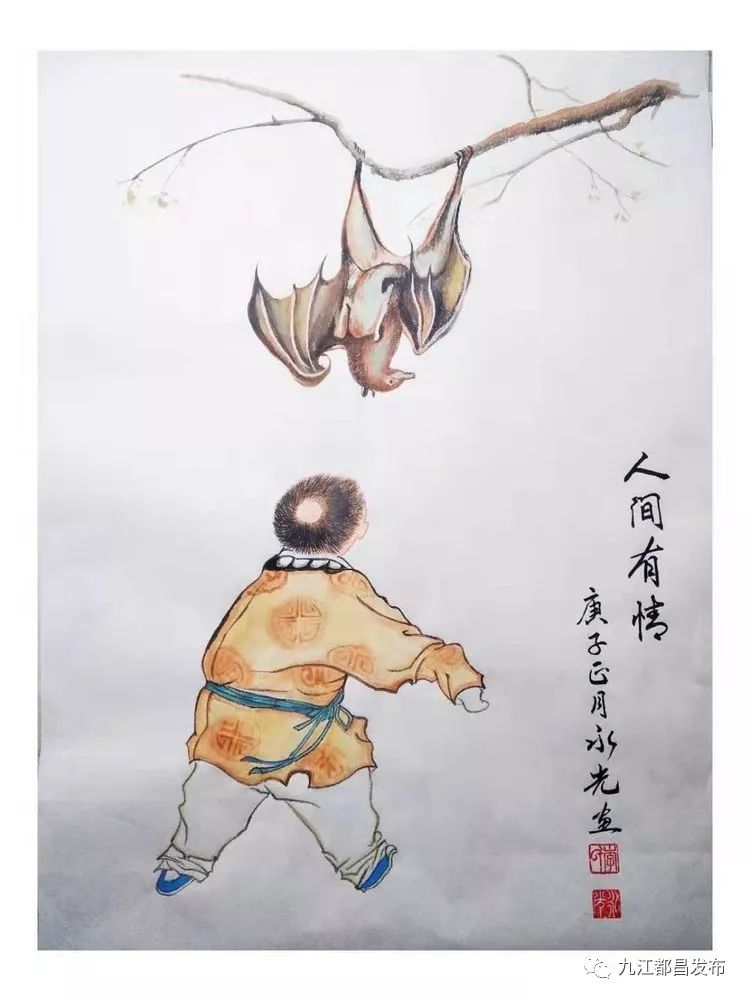 人间有情
庚子正月永光画
九江都昌发布